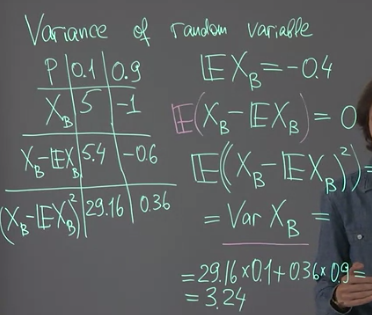 Variance of random variable
P | 0.1 | 0.9
X_B | 5 | -1
X_B-𝔼X_B | 5.4 | -0.6
(X_B-𝔼X_B)² | 29.16 | 0.36
𝔼X_B=-0.4
𝔼(X_B-𝔼X_B)=0
𝔼((X_B-𝔼X_B)²)=
=Var X_B=
=29.16×0.1+0.36×0.9=
=3.24